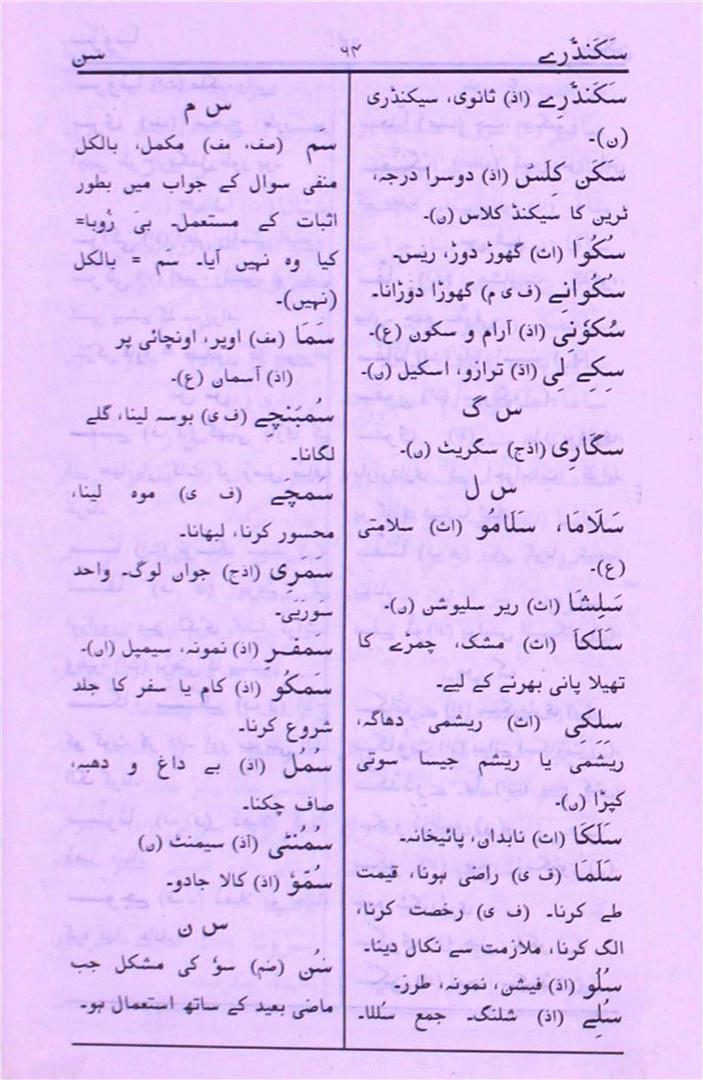 سَکَنڈَرے
۶۴
سن
سَکَنڈَرے (اذ) ثانوی، سیکنڈری
(ن)۔
سَکَن کِلَس (اذ) دوسرا درجہ،
ٹرین کا سیکنڈ کلاس (ن)۔
سُکُوَا (اث) گھور دوڑ، ریس۔
سُکُوانے (ف ی م) گھوڑا دوڑانا۔
سُکوٗنی (اذ) آرام و سکون (ع)۔
سِکِے لی (اذ) ترازو، اسکیل (ن)۔
س گ
سگارِی (اذج) سگریٹ (ن)۔
س ل
سَلَاما، سَلَامُو (اث) سلامتی
(ع)۔
سَلِشَا (اث) ربر سلیوشن (ن)۔
سَلَکا (اث) مشک، چمڑے کا
تھیلا پانی بھرنے کے لیے۔
سلِکی (اث) ریشمی دھاگہ،
ریشمی یا ریشم جیسا سوتی
کپڑا (ن)۔
سَلَگا (اث) نابدان، پائیخانہ۔
سَلَمَا (ف ی) راضی ہونا، قیمت
طے کرنا۔ (ف ی) رخصت کرنا،
الگ کرنا، ملازمت سے نکال دینا۔
سُلُو (اذ) فیشن، نمونہ، طرز۔
سُلِے (اذ) شلنگ۔ جمع سُللا۔
س م
سم (صف، مف) مکمل، بالکل
منفی سوال کے جواب میں بطور
اثبات کے مستعمل۔ بیَ رُوبا=
کیا وہ نہیں آیا۔ سَم = بالکل
(نہیں)۔
سَمَا (مف) اوپر، اونچائی پر
(اذ) آسمان (ع)۔
سُمبَنچِے (ف ی) بوسہ لینا، گلے
لگانا۔
سَمَچَے (ف ی) موہ لینا،
محسور کرنا، لبھانا۔
سَمَرِی (اذج) جوان لوگ۔ واحد
سَورَیَی۔
سمفرِ (اذ) نمونہ، سیمپل (ان)۔
سَمکُو (اذ) کام یا سفر کا جلد
شروع کرنا۔
سمُل (اذ) بے داغ و دھبہ،
صاف چکنا۔
سُمُنتی (اذ) سیمنٹ (ن)
سُمّوٗ (اذ) کالا جادو۔
س ن
سُن (ضم) سوٗ کی مشکل جب
ماضی بعید کے ساتھ استعمال ہو۔